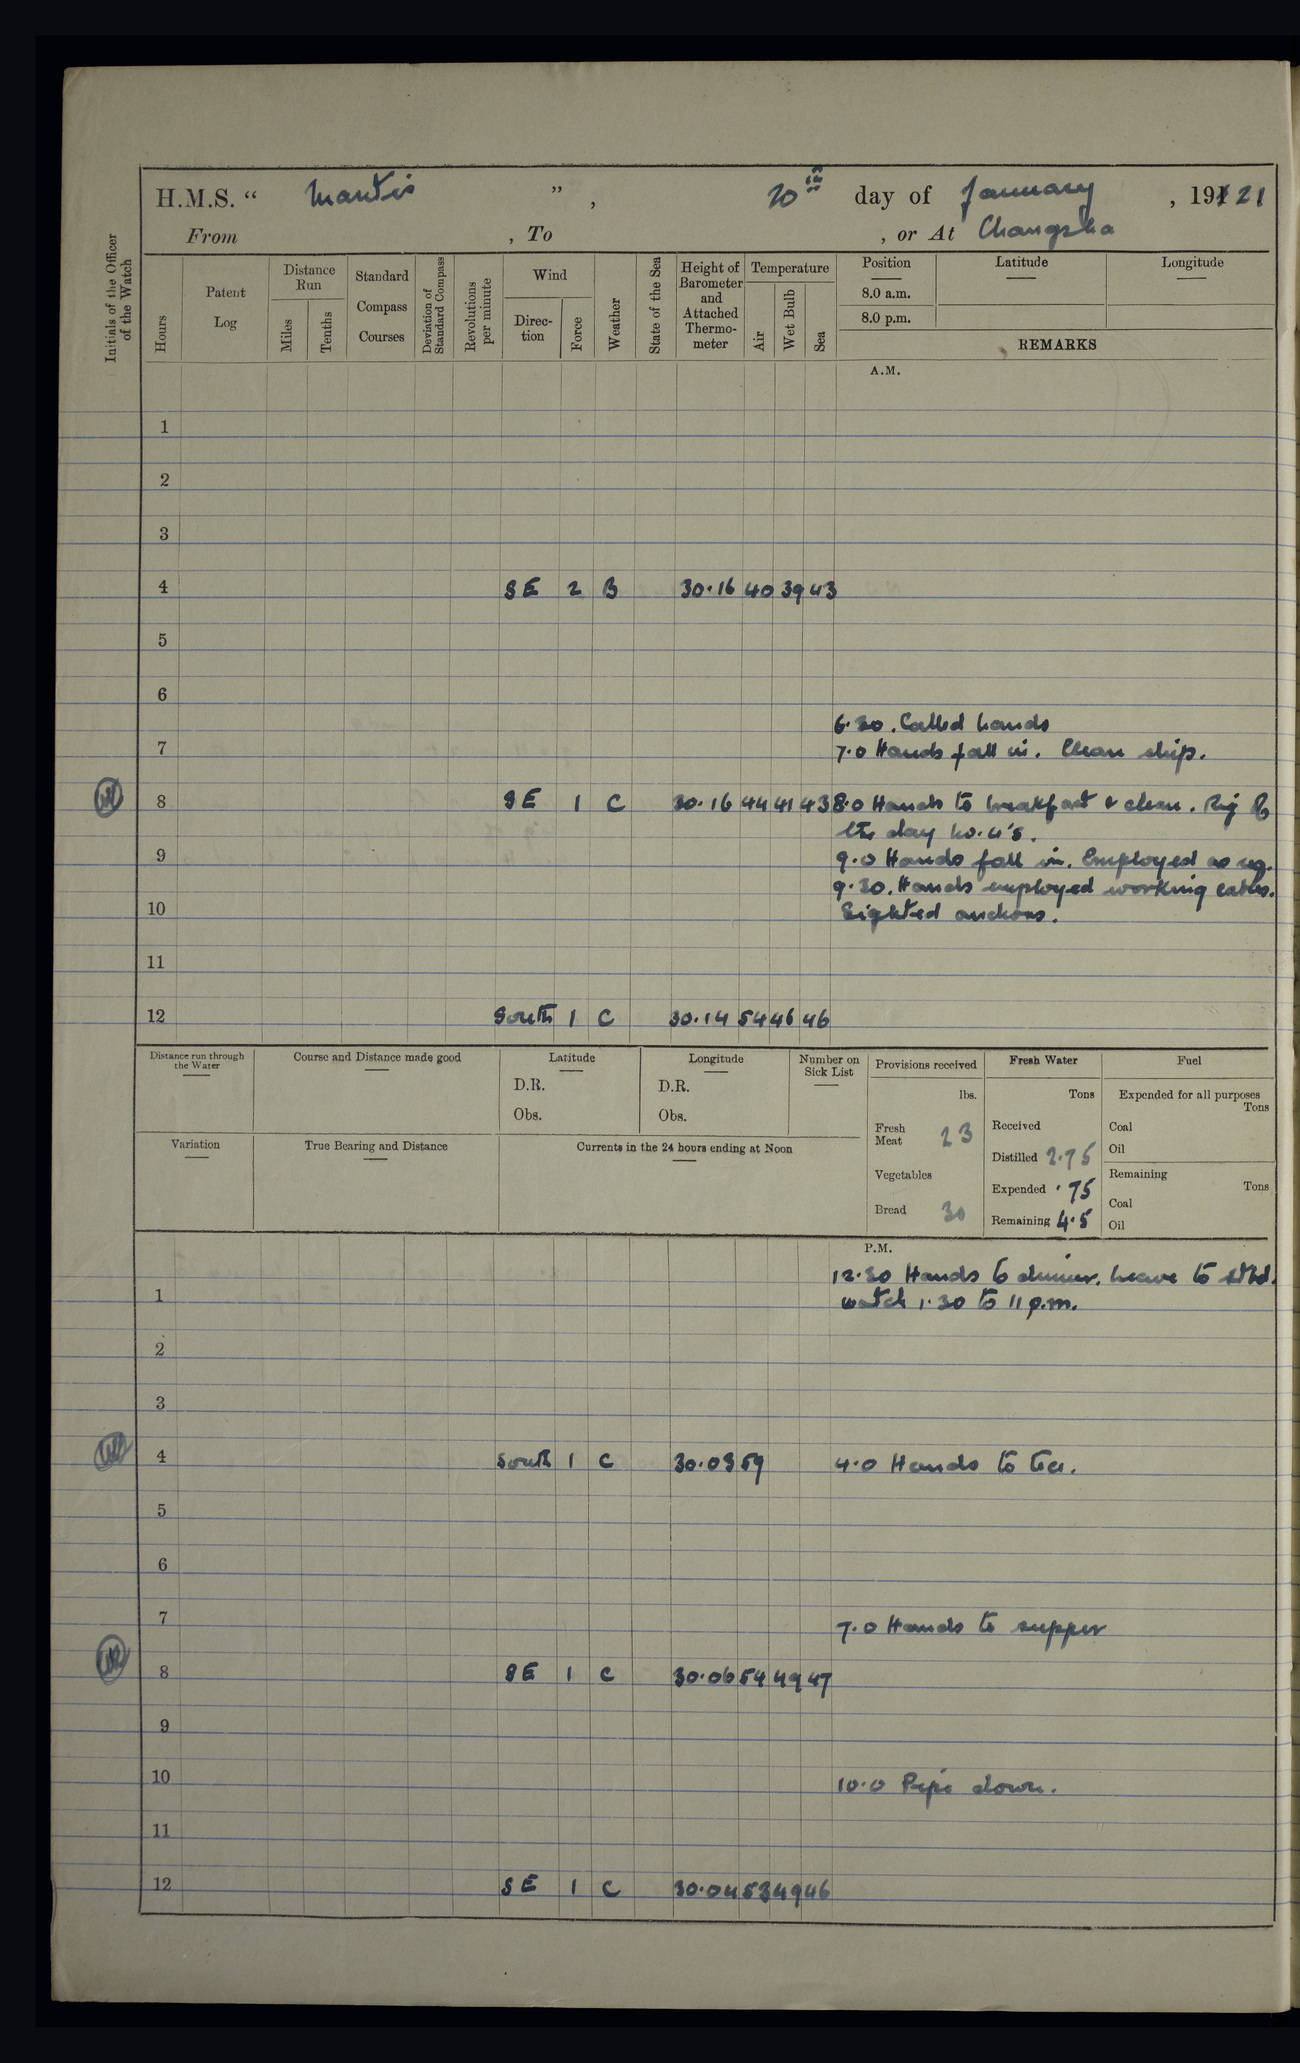 H.M.S. “ Mantis ” , 20th day of January , 191 21
From , To , or At Changsha
Initials of the Officer of the Watch
Hours
Patent Log
Distance Run
Miles
Tenths
Standard Compass Courses
Deviation of Standard Compass
Revolutions per minute
Wind
Direction
Force
Weather
State of the Sea
Height of Barometer and Attached Thermometer
Temperature
Air
Wet Bulb
Sea
Position Latitude Longitude
8.0 a.m.
8.0 p.m.
REMARKS
A.M.
1
2
3
4 SE 2 B 30.16 40 39 43
5
6
6.30. Called hands
7 7.0 Hands fall in. Clean ship.
8 SE 1 C 30.16 44 41 43 8.0 Hands to breakfast & clean. Rig of
the day No. 4's.
9 9.0 Hands fall in. Employed as req.
9.30. Hands employed working cables.
10 Sighted anchors.
11
12 South 1 C 30.14 54 46 46
Distance run through the Water
Course and Distance made good
Latitude
D.R.
Obs.
Longitude
D.R.
Obs.
Number on Sick List
Provisions received
lbs.
Fresh Meat 23
Vegetables
Bread 30
Fresh Water
Tons
Received
Distilled 2.75
Expended .75
Remaining 4.5
Fuel
Expended for all purposes
Tons
Coal
Oil
Remaining
Tons
Coal
Oil
Variation
True Bearing and Distance
Currents in the 24 hours ending at Noon
P.M.
12.30 Hands to dinner. Leave to stbd.
1 watch 1.30 to 11 p.m.
2
3
4 South 1 C 30.03 59 4.0 Hands to tea.
5
6
7 7.0 Hands to supper
8 SE 1 C 30.06 54 49 47
9
10 10.0 Pipe down.
11
12 SE 1 C 30.04 53 49 46